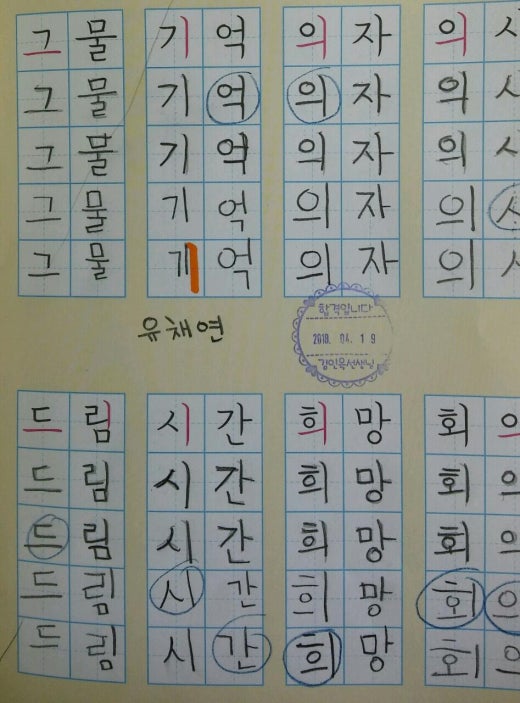 그물 기억 의자 의사
그물 기억 의자 의사
그물 기억 의자 의사
그물 기억 의자 의사
그물 기억 의자 의사
유채연
합격입니다
2018. 04. 19
드림 시간 희망 회의
드림 시간 희망 회의
드림 시간 희망 회의
드림 시간 희망 회의
드림 시간 희망 회의